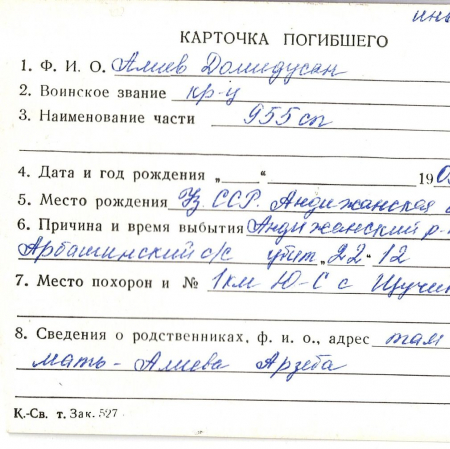 инв
КАРТОЧКА ПОГИБШЕГО
1. Ф. И. О. Алиев Домидусан
2. Воинское звание кр-ц
3. Наименование части 955сп
4. Дата и год рождения „ “ 190
5. Место рождения Уз. ССР. Андижанская о
6. Причина и время выбытия Андижанский р-
Арбашинский с/с убит „22“ 12
7. Место похорон и № 1км Ю-С с Щучи
8. Сведения о родственниках, ф. и. о., адрес там
мать - Алиева Арзеба
К.-Св. т. Зак. 527